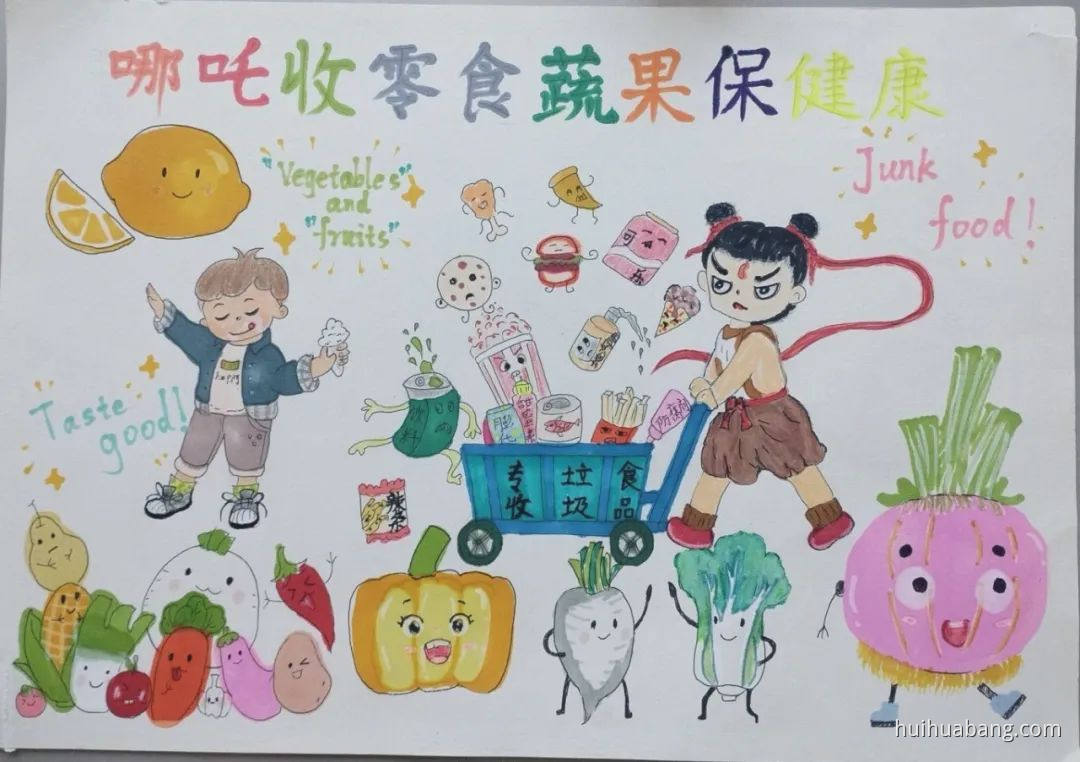 哪吒收零食蔬果保健康
"Vegetables"
and
"fruits"
Junk
food!
可
乐
happy
Taste
good!
饮
料
膨化
甜蜜素
防腐剂
辣条
专收
垃圾
食品
huihuabang.com